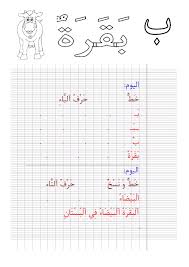 ب بَقَرَةٌ
اليوم:
خَطٌّ حَرْفُ البَاء
بـ
ب
بَقَرَة
اليوم:
خَطٌّ وَ نَسْخٌ حَرْفُ البَاء
البَيْضَاء
البَقَرَةُ البَيْضَاءُ فِي البُسْتَانِ